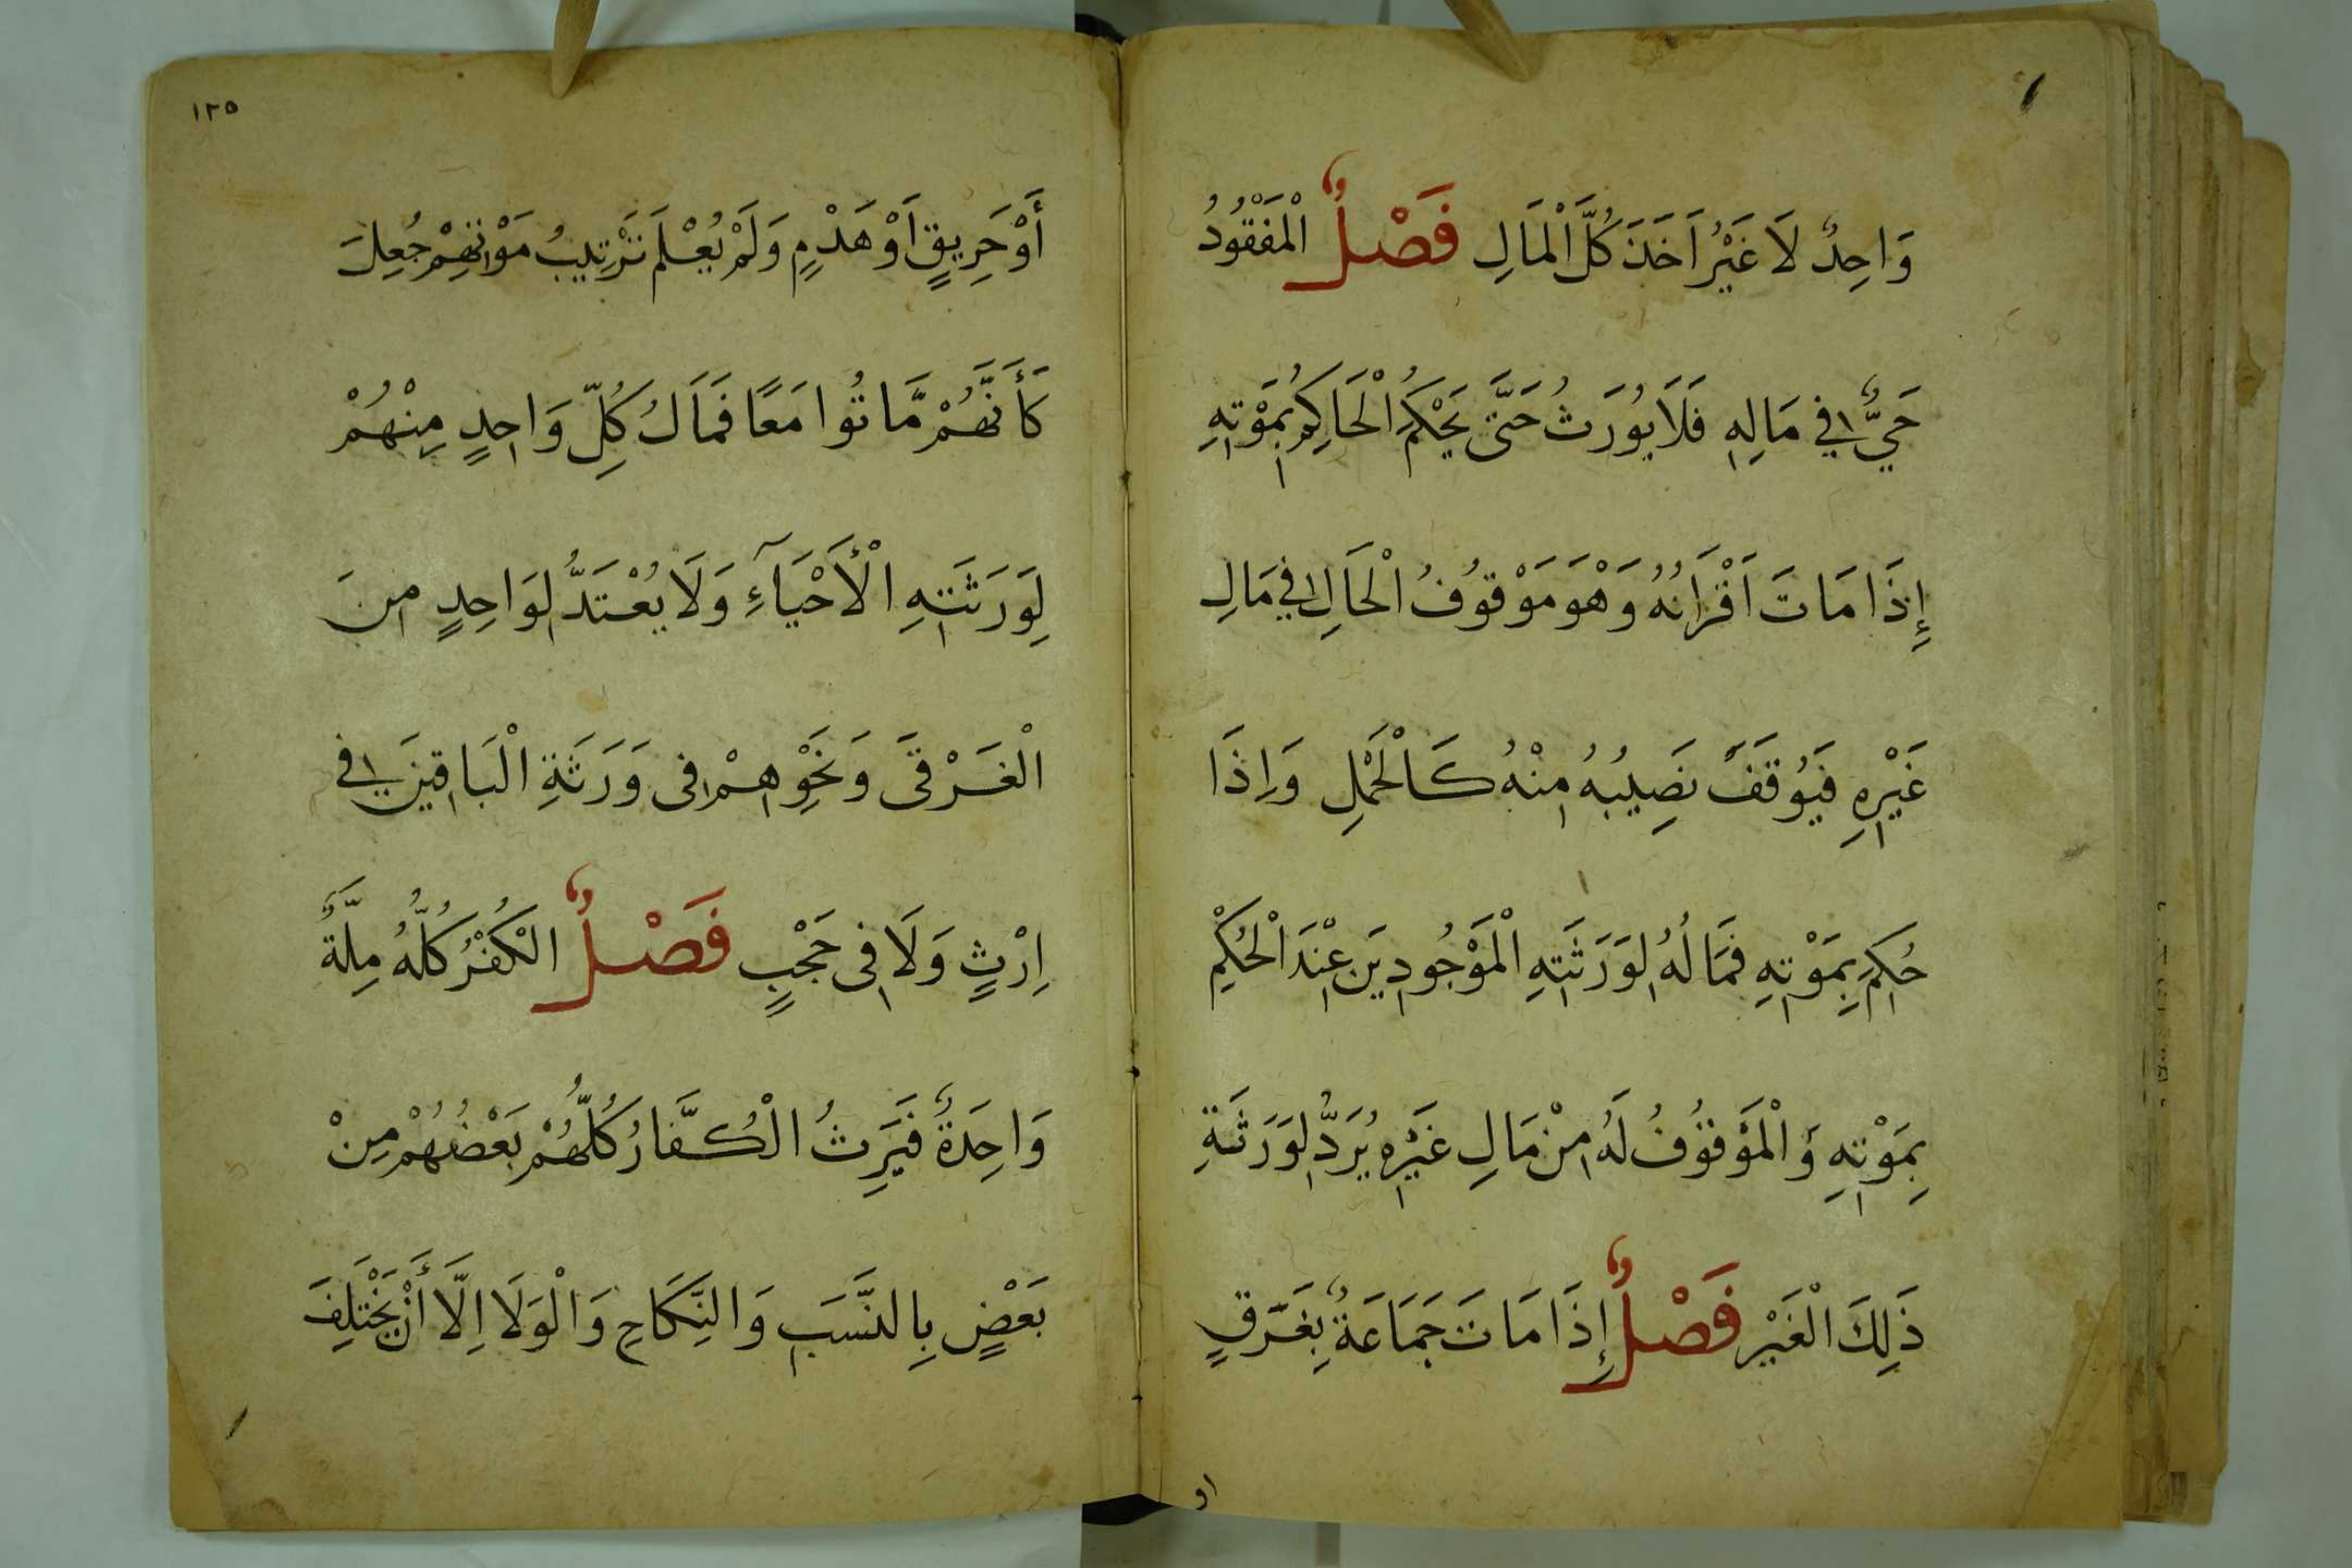 وَاحِدٌ لَا غَيْرُ اَخَذَ كُلَّ الْمَالِ فَصْلٌ الْمَفْقُودُ
حَيٌّ فِي مَالِهِ فَلَا يُورَثُ حَتَّى يَحْكُمَ الْحَاكِمُ بِمَوْتِهِ
إِذَا مَاتَ اَقْرَانُهُ وَهْوَ مَوْقُوفُ الْحَالِ فِي مَالِ
غَيْرِهِ فَيُوقَفُ نَصِيبُهُ مِنْهُ كَالْحَمْلِ وَاِذَا
حُكِمَ بِمَوْتِهِ فَمَالُهُ لِوَرَثَتِهِ الْمَوْجُودِينَ عِنْدَ الْحُكْمِ
بِمَوْتِهِ وَالْمَوْقُوفُ لَهُ مِنْ مَالِ غَيْرِهِ يُرَدُّ لِوَرَثَةِ
ذَلِكَ الْغَيْرِ فَصْلٌ إِذَا مَاتَ جَمَاعَةٌ بِغَرَقٍ
او
١٢٥
أَوْ حَرِيقٍ اَوْ هَدْمٍ وَلَمْ يُعْلَمْ تَرْتِيبُ مَوْتِهِمْ جُعِلَ
كَأَنَّهُمْ مَّاتُوا مَعًا فَمَالُ كُلِّ وَاحِدٍ مِنْهُمْ
لِوَرَثَتِهِ الْأَحْيَآءِ وَلَا يُعْتَدُّ لِوَاحِدٍ مِنَ
الْغَرْقَى وَنَحْوِهِمْ فِى وَرَثَةِ الْبَاقِينَ فِي
اِرْثٍ وَلَا فِى حَجْبٍ فَصْلٌ الْكُفْرُ كُلُّهُ مِلَّةٌ
وَاحِدَةٌ فَيَرِثُ الْكُفَّارُ كُلُّهُمْ بَعْضُهُمْ مِنْ
بَعْضٍ بِالنَّسَبِ وَالنِّكَاحِ وَالْوَلَا اِلَّا أَنْ يَخْتَلِفَ